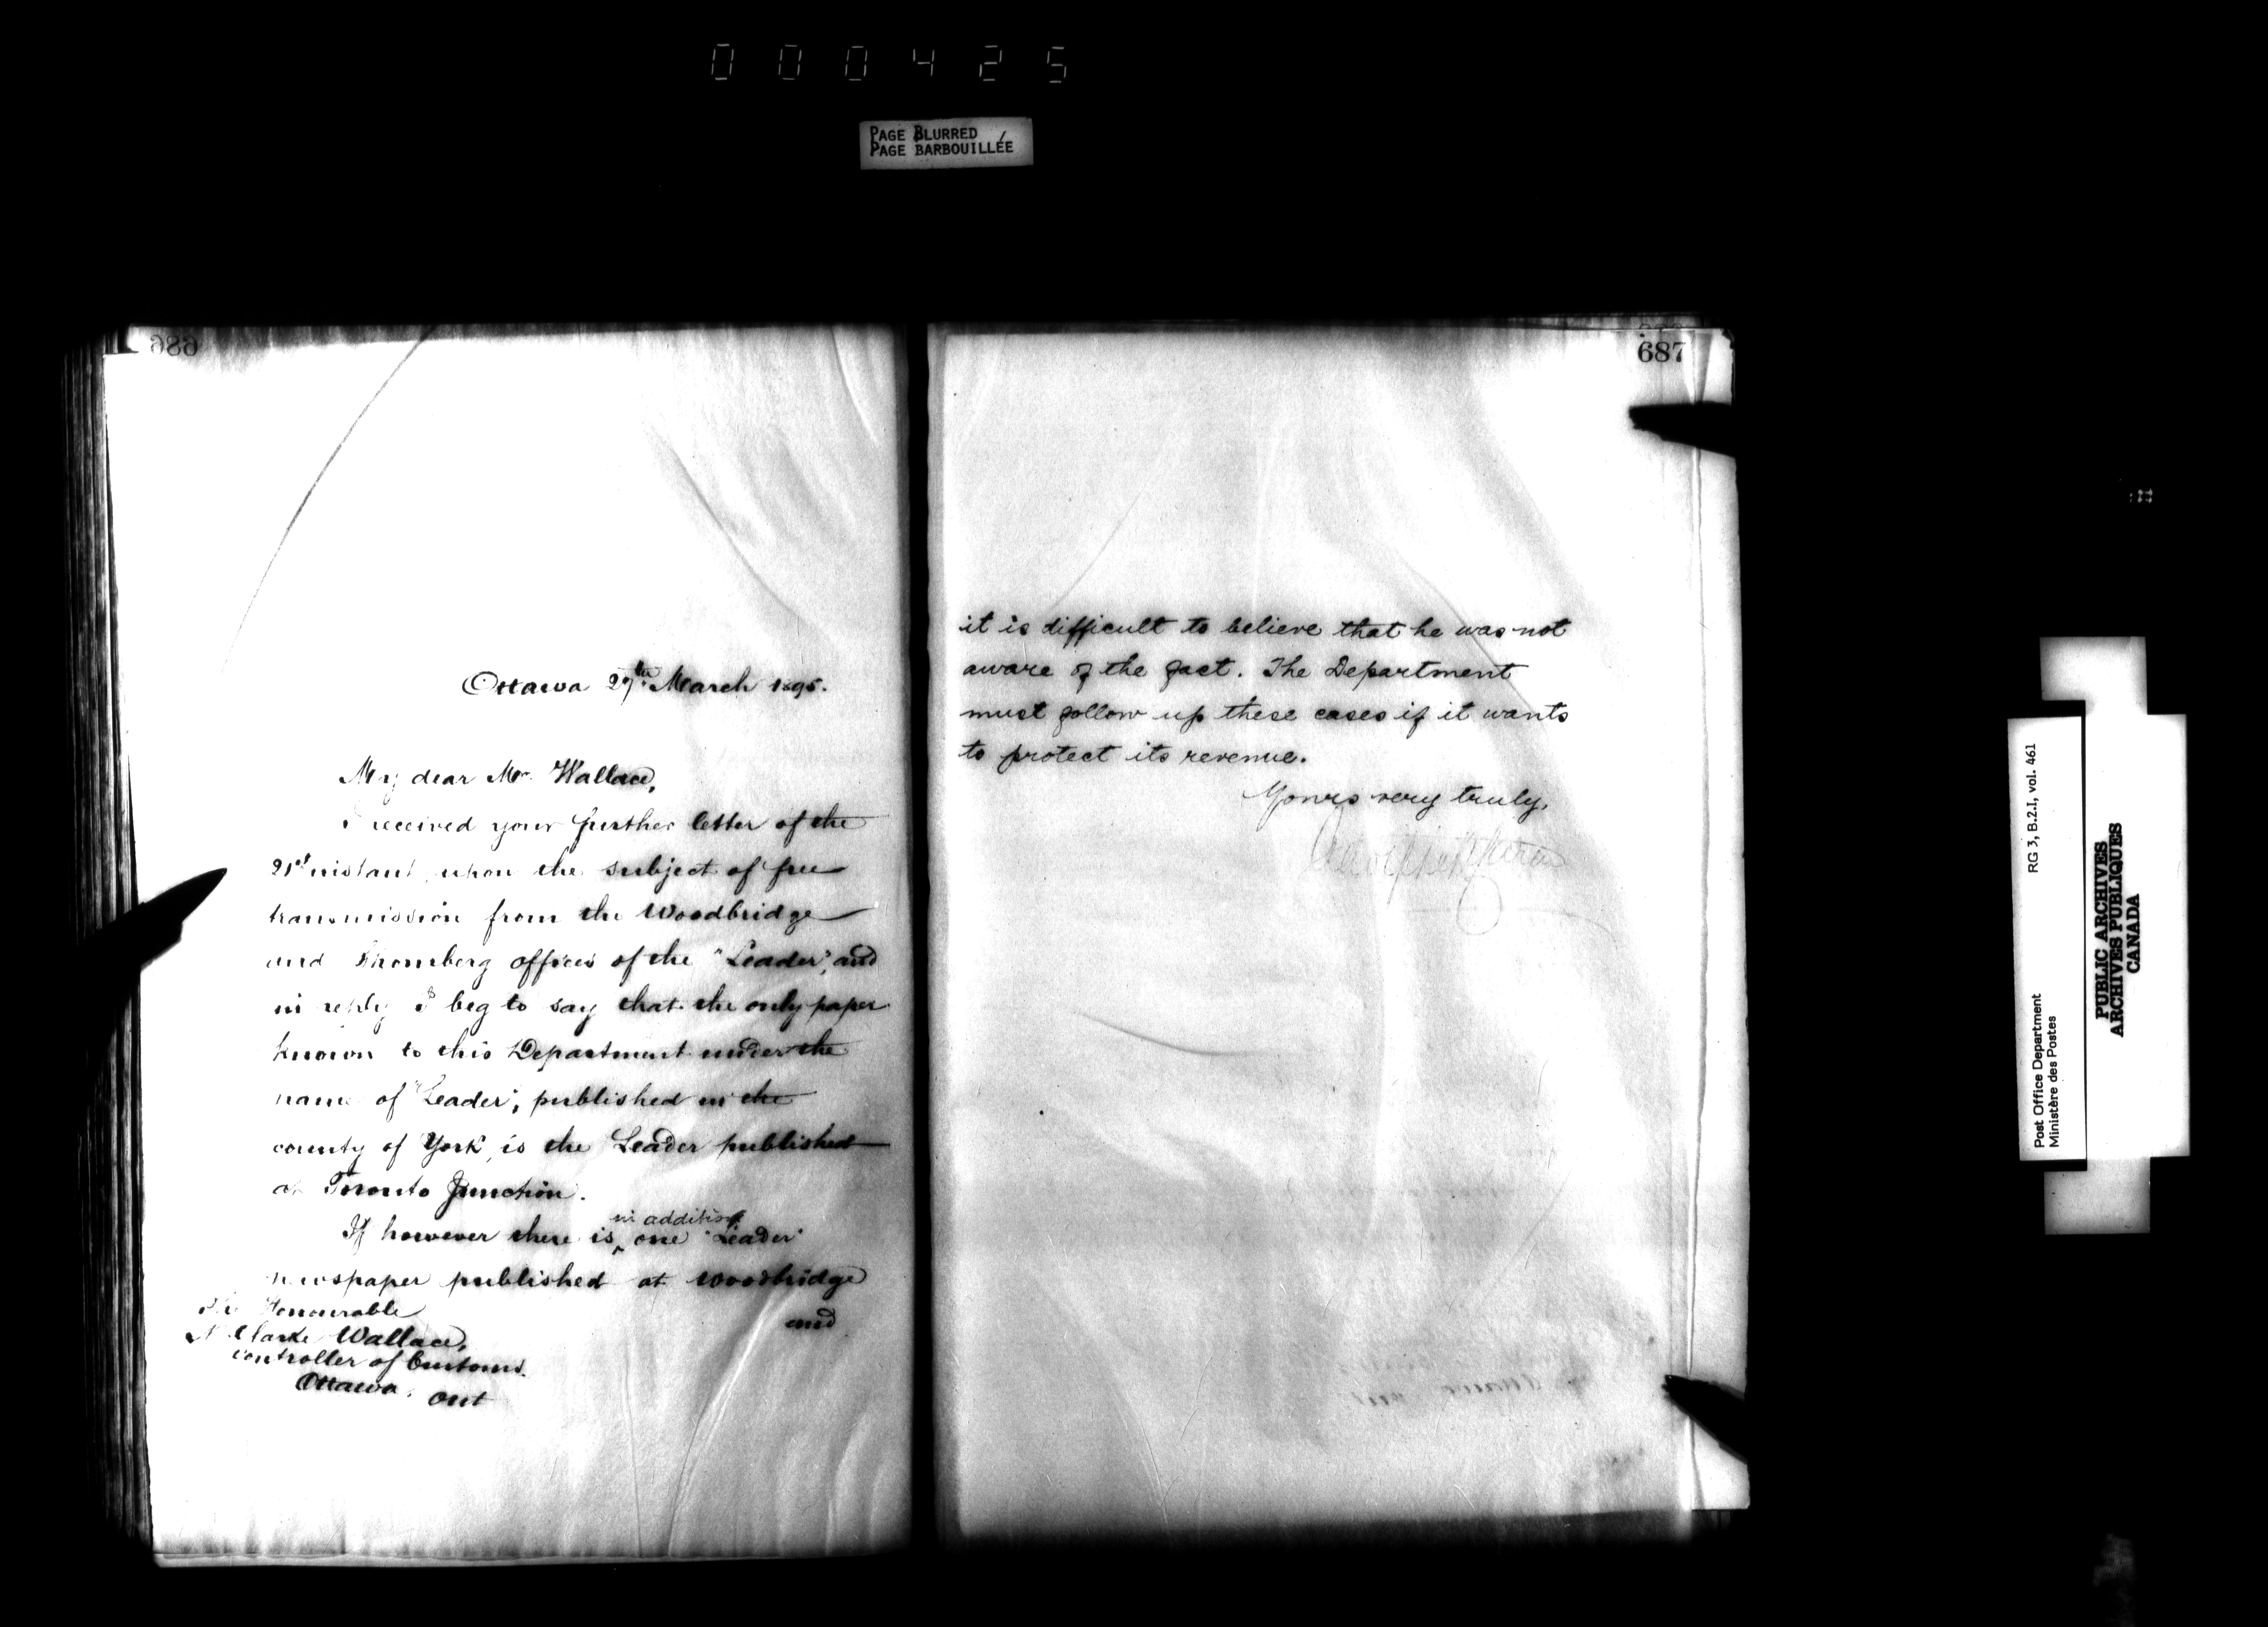 000425
PAGE BLURRED
PAGE BARBOUILLÉE
686
Ottawa 27th March 1895.
My dear Mr. Wallace,
I received your further letter of the
21st instant, upon the subject of free
transmission from the Woodbridge
and offices of the "Leader", and
in reply I beg to say that the only paper
known to this Department under the
name of "Leader", published in the
county of York, is the Leader published
at Toronto Junction.
in addition
If however there is ‸ one "Leader"
newspaper published at Woodbridge
and
The Honourable
N. Clarke Wallace,
Controller of Customs.
Ottawa. Ont
687
it is difficult to believe that he was not
aware of the fact. The Department
must follow up these cases if it wants
to protect its revenue.
Yours very truly,
RG 3, B.2.I, vol. 461
Post Office Department
Ministère des Postes
PUBLIC ARCHIVES
ARCHIVES PUBLIQUES
CANADA